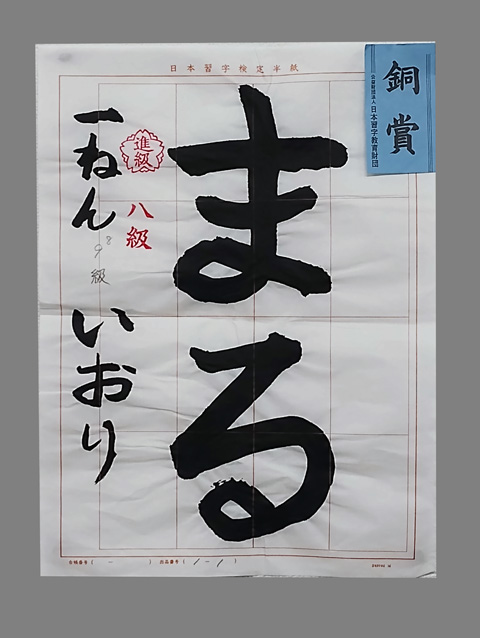 日本習字検定半紙
銅賞
公益財団法人 日本習字教育財団
まる
進級
八級
9 8
級
一ねん いおり
合格番号( - ) 出品番号( 1-1 )